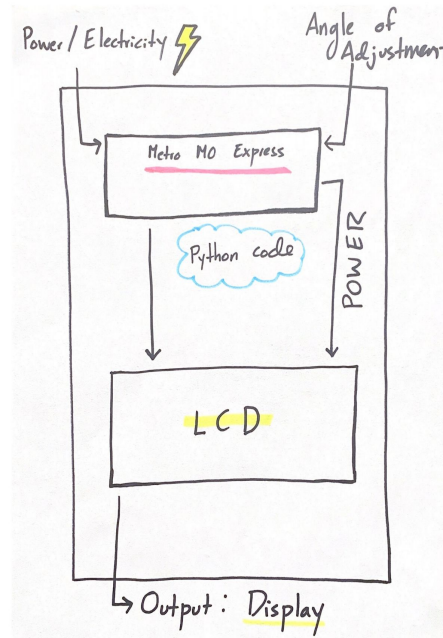 Power/Electricity
Angle of
Adjustment
Metro M0 Express
Python code
POWER
LCD
Output: Display